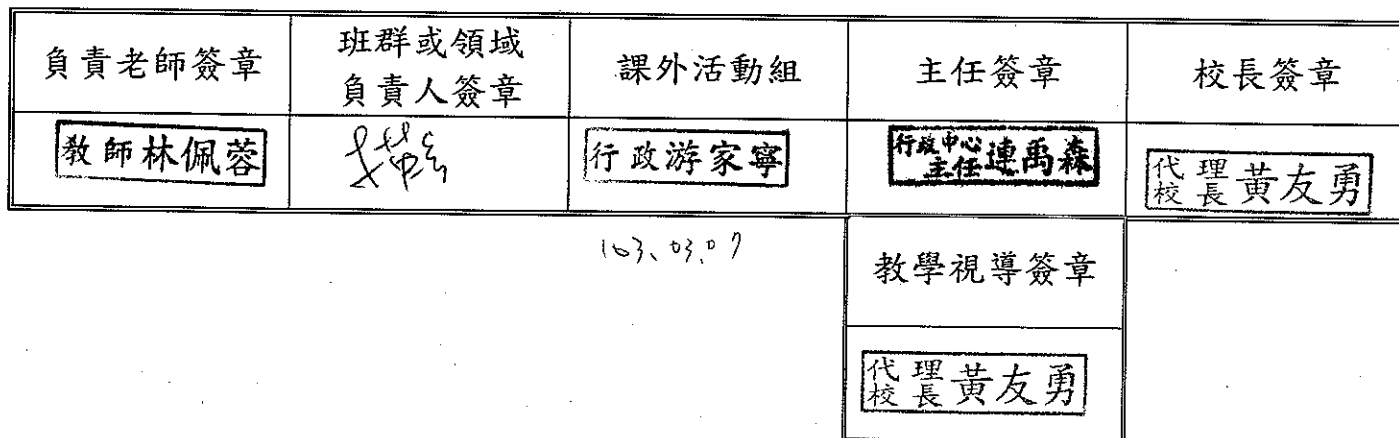 負責老師簽章
班群或領域
負責人簽章
課外活動組
主任簽章
校長簽章
教師林佩蓉
行政游家寧
行政中心
主任連禹森
代理
校長黃友勇
103.03.07
教學視導簽章
代理
校長黃友勇